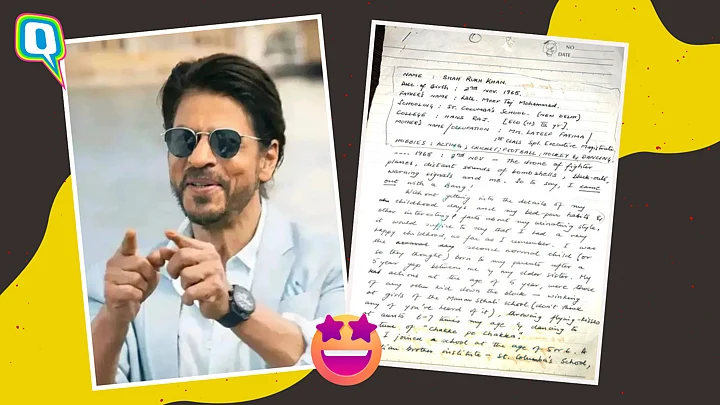 Q
NO
DATE
NAME : SHAH RUKH KHAN.
Date of Birth : 2nd NOV. 1965.
FATHER'S NAME : Late. Meer Taj Mohammed.
SCHOOLING : ST. COLUMBA'S SCHOOL. (NEW DELHI)
COLLEGE : HANS RAJ. [ECO (H) III yr].
MOTHER'S NAME/OCCUPATION : Mrs. LATEEF FATIMA /
1st CLASS Spl. Executive Magistrate
HOBBIES : ACTING, CRICKET, FOOTBALL, HOCKEY & DANCING.
2nd NOV — the drone of fighter
planes, distant sounds of bombshells, black-outs,
warning signals and me. So to say, I came
out with a bang!
Without getting into the details of my
childhood days and my bed-pan habits &
other interesting facts about my urinating style,
it would suffice to say that I had a very
happy childhood, as far as I remember. I was
the second normal child (or
so they thought) born to my parents after a
5 year gap between me & my elder sister. My
actions at the age of 5 year, were those
of any other kid down the block — winking
at girls of the school (don't think
any of you've heard of it), throwing flying-kisses
at aunts 6-7 times my age & dancing to
tune of "Chakke pe Chakka".
I joined a school at the age of 5 or 6. A
brother institute — St. Columba's School,